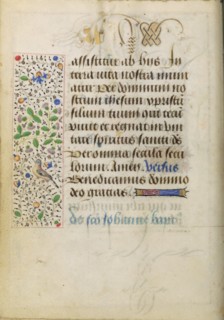 assistite ab hus. In
tera uita nostra muni
atur Per dominum no
strum ihesum xpristi
filium tuum qui tecū
viuit et regnat in vni
tate spiritus sancti de
Per omnia secula secu
lorum. Amen. Versus
Benedicamus domino
deo gracias.
de sco iohanne bapt